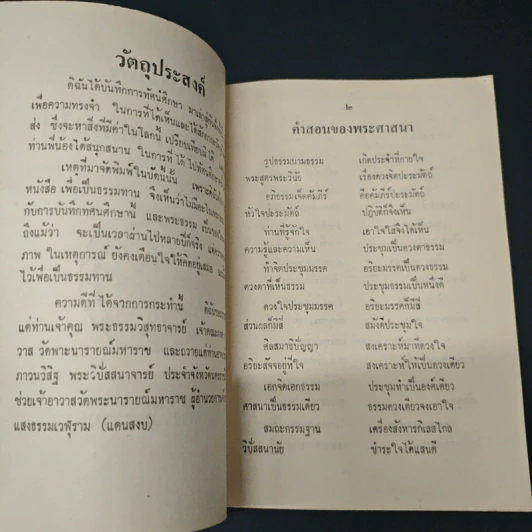 วัตถุประสงค์
ดิฉันได้บันทึกการทัศน์ศึกษา
เพื่อความทรงจำ ในการที่ได้เห็นและได้สักการะ
ส่ง ซึ่งจะหาสิ่งที่มีค่าในโลกนี้ เปรียบเทียบได้
ท่านพี่น้องได้สนุกสนาน ในการที่ ได้ ไปทัศน์
เหตุที่มาจัดพิมพ์ในบัดนี้นั้น เพราะ
หนังสือ เพื่อเป็นธรรมทาน จึงเห็นว่าไม่มีอะไร
กับการบันทึกทัศนศึกษานี้ และพระธรรม
ถึงแม้ว่า จะเป็นเวลาผ่านไปหลายปีก็จริง แต่
ภาพ ในเหตุการณ์ ยังคงเตือนใจให้คิดอยู่เสมอ
ไว้เพื่อเป็นธรรมทาน
ความดีที่ ได้จากการกระทำนี้
แด่ท่านเจ้าคุณ พระธรรมวิสุทธาจารย์ เจ้าคณะภาค
วาส วัดพระนารายณ์มหาราช และถวายแด่ท่าน
ภาวนวสิฐ พระวิปัสสนาจารย์ ประจำจังหวัด
ช่วยเจ้าอาวาสวัดพระนารายณ์มหาราช ผู้อำนวยการ
แสงธรรมเวฬุราม (แดนสงบ)
๒
คำสอนของพระศาสนา
รูปธรรมนามธรรม เกิดประจำที่กายใจ
พระสูตรพระวินัย เรื่องดวงจิตปะระมัตถ์
อภิธรรมเจ็ดคัมภีร์ คือคัมภีร์ปะระมัตถ์
หัวใจปะระมัตถ์ ปฏิบัติก็จึงเห็น
ท่านที่รู้จักใจ เอาใจใส่จึงได้เห็น
ความรู้และความเห็น ประชุมเป็นดวงตาธรรม
ทำจิตประชุมมรรค อริยะมรรคเป็นดวงธรรม
ดวงตาที่เห็นธรรม ประชุมธรรมเป็นหนึ่งดี
ดวงใจประชุมมรรค อริยะมรรคก็มีสี่
ส่วนผลก็มีสี่ สมังคีประชุมใจ
ศีลสมาธิปัญญา สงเคราะห์มาที่ดวงใจ
อริยะสัจจอยู่ที่ใจ สงเคราะห์ให้เป็นดวงเดียว
เอกจิตเอกธรรม ประชุมทำเป็นองค์เดียว
ศาสนาเป็นธรรมเดียว ธรรมดวงเดียวจงเอาใจ
สมถะกรรมฐาน เครื่องสังหารกิเลสไกล
วิปัสสนานัย ชำระใจได้แสนดี